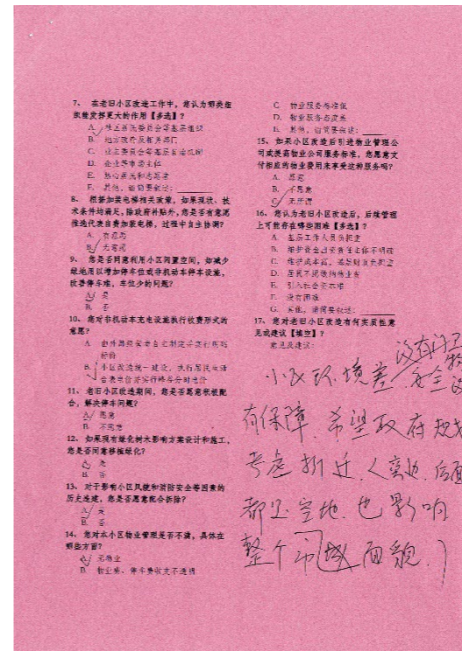 7、 在老旧小区改造工作中，您认为哪类组
织能发挥更大的作用【多选】？
B. 地方政府及有关部门
D. 企业等市场主体
E. 热心居民和志愿者
F. 其他，由简要叙述：
8、 根据加装电梯相关政策，如果现状、技
术条件均满足，除政府补贴外，您是否有意愿
推选代表自费加装电梯，过程中自主协调？
A. 有意愿
B. 无意愿
9、 您是否同意利用小区闲置空间，如减少
绿地用以增加停车位或非机动车停车设施，
缓停车难、车位少的问题？
A. 是
B. 否
10、 您对非机动车充电设施执行收费形式的
意愿？
11、 老旧小区改造期间，您是否愿意积极配
合，解决停车问题？
A. 愿意
B. 不愿意
12、 如果现有绿化树木影响方案设计和施工，
您是否同意移植绿化？
A. 是
B. 否
13、 对于影响小区风貌和消防安全等因素的
历史违建，您是否愿意配合拆除？
A. 是
B. 否
14、 您对本小区物业管理是否不满，具体在
哪些方面？
A. 无物业
C. 物业服务标准低
D. 物业服务态度差
E. 其他，由简要叙述：
15、 如果小区改造后引进物业管理公
司或提高物业公司服务标准，您愿意支
付相应的物业费用来享受这种服务吗？
A. 愿意
B. 不愿意
C. 无所谓
16、 您认为老旧小区改造后，后续管理
上可能存在哪些困难【多选】？
A. 基层工作人员负担重
D. 居民不愿缴纳物业费
E. 引入社会资本难
F. 没有困难
G. 其他，请简要叙述：
17、 您对老旧小区改造有何实质性意
见或建议【填空】？
意见及建议：
小区环境差，安全没
有保障，希望政府规划
考虑拆迁（离边，后面
都是空地，也影响
整个城面貌。）